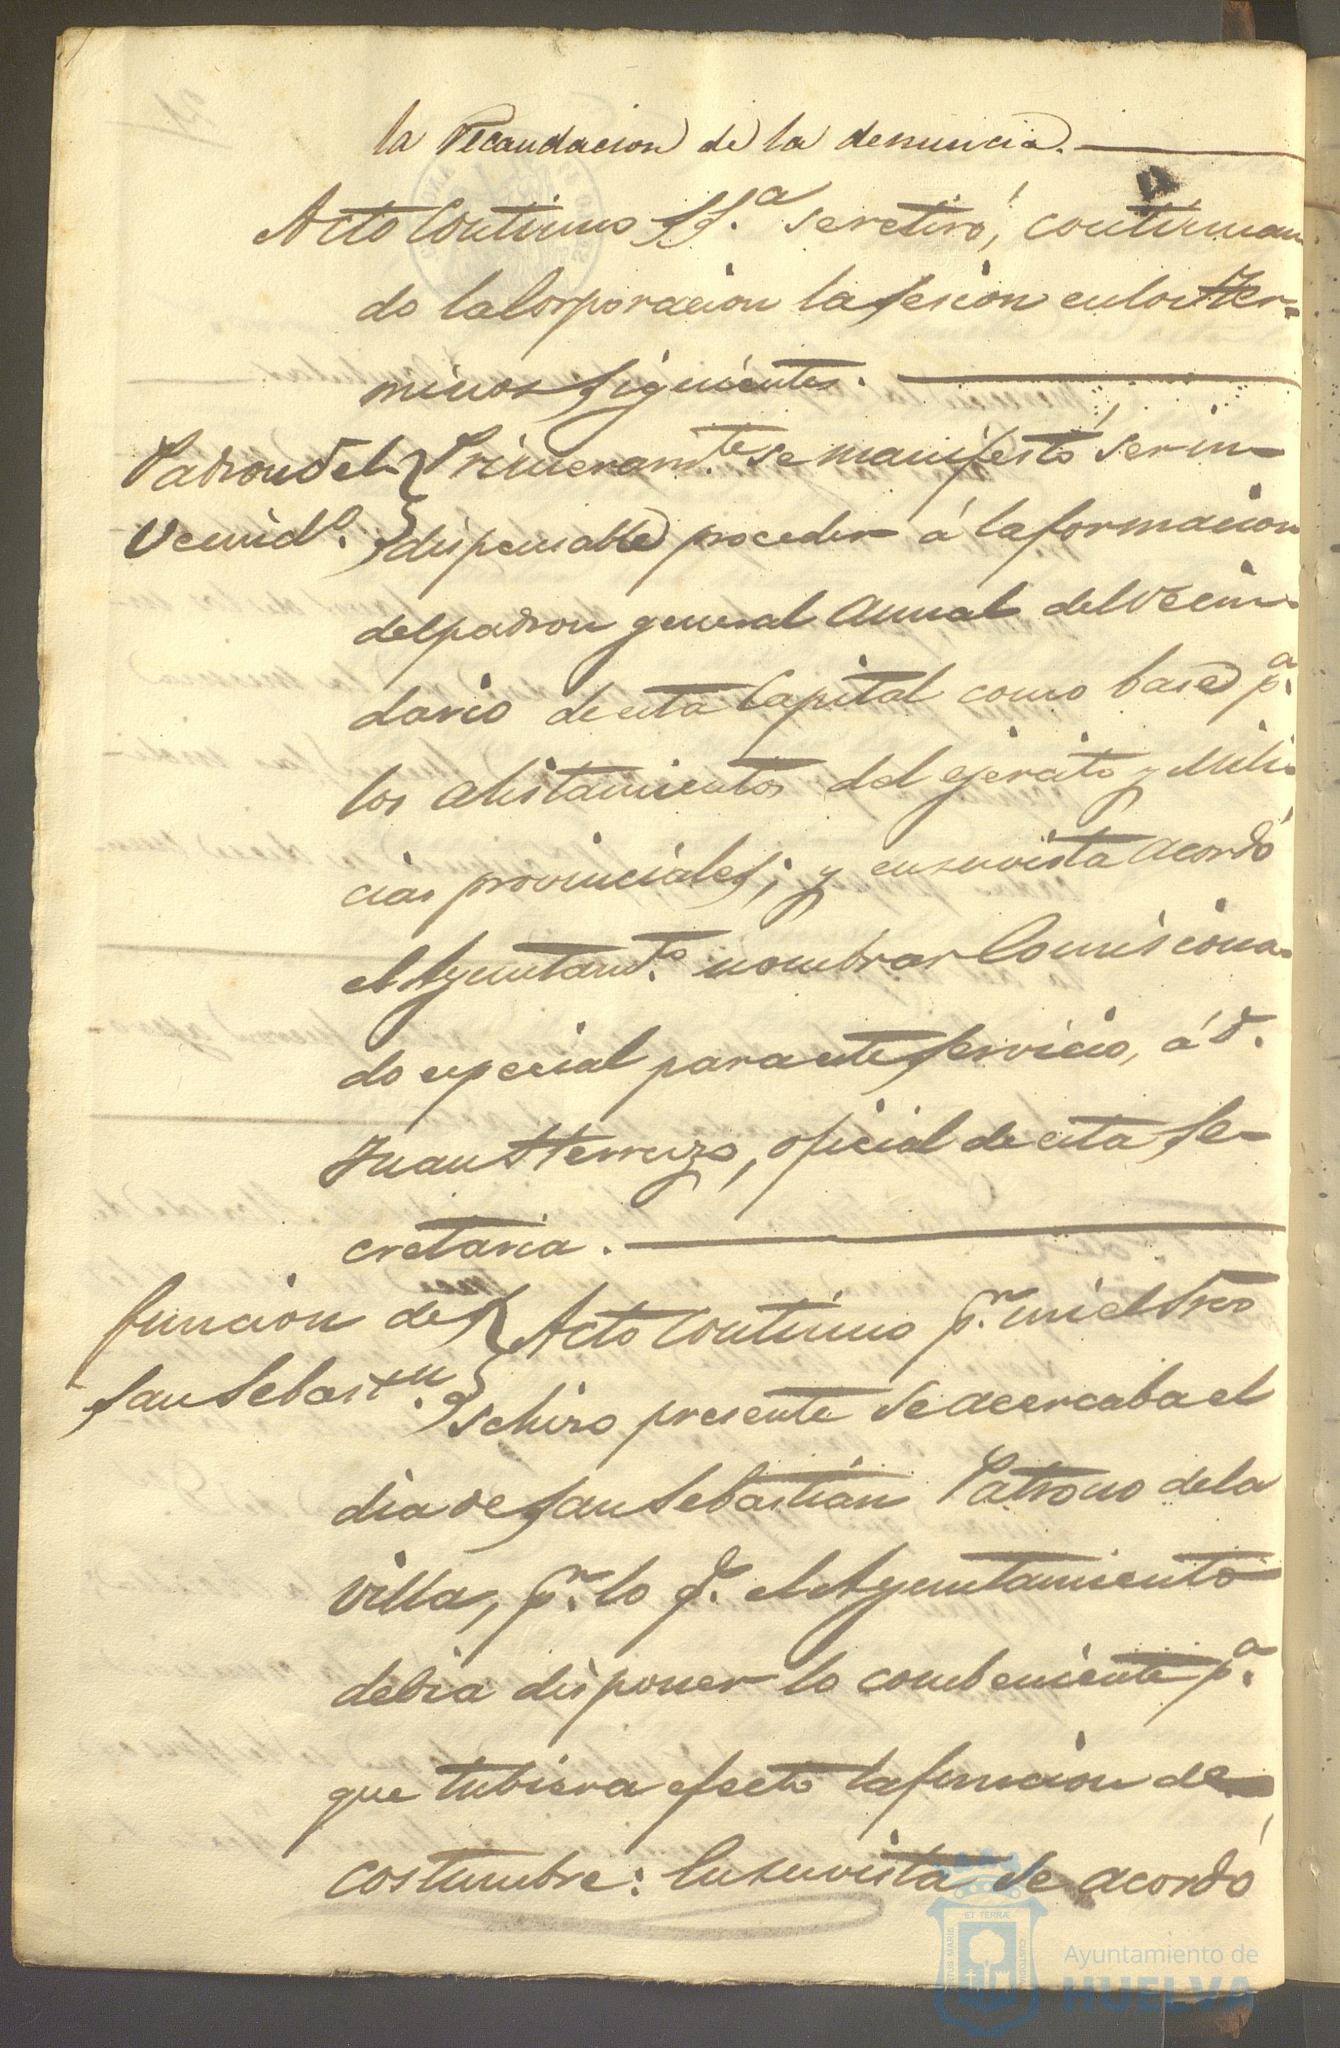 la recaudacion de la denuncia.
Acto continuo S.S.ª se retiró, continuan
do la Corporacion la sesion en los ter-
minos siguientes.
Padron del
Vecind.º
Primeram.te se manifestó ser in-
dispensable proceder á la formacion
del padron general anual del vecin-
dario de esta Capital como base p.ª
los alistamientos del ejercito y Mili-
cias provinciales; y en su vista acordó
el Ayuntam.to nombrar Comisiona-
do especial para este servicio, á D.
Juan Herrezo, oficial de esta Se-
cretaria.
funcion de
San Sebast.n
Acto continuo p.r mi el Srio
se hizo presente se acercaba el
dia de San Sebastián Patrono de la
Villa, p.r lo q.e el Ayuntamiento
debia disponer lo combeniente p.ª
que tubiera efecto la funcion de
costumbre: En su vista se acordó
ET TERRÆ
PORTUS MARIS
CUSTODIA
Ayuntamiento de
HUELVA